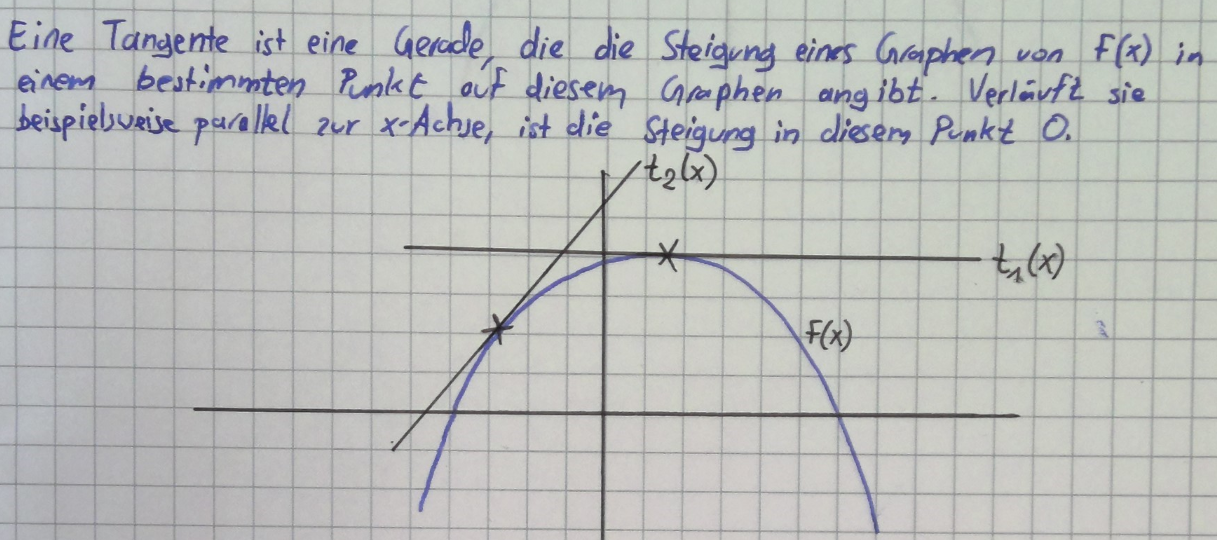 Eine Tangente ist eine Gerade, die die Steigung eines Graphen von f(x) in
einem bestimmten Punkt auf diesem Graphen angibt. Verläuft sie
beispielsweise parallel zur x-Achse, ist die Steigung in diesem Punkt 0.
t₂(x)
t₁(x)
f(x)